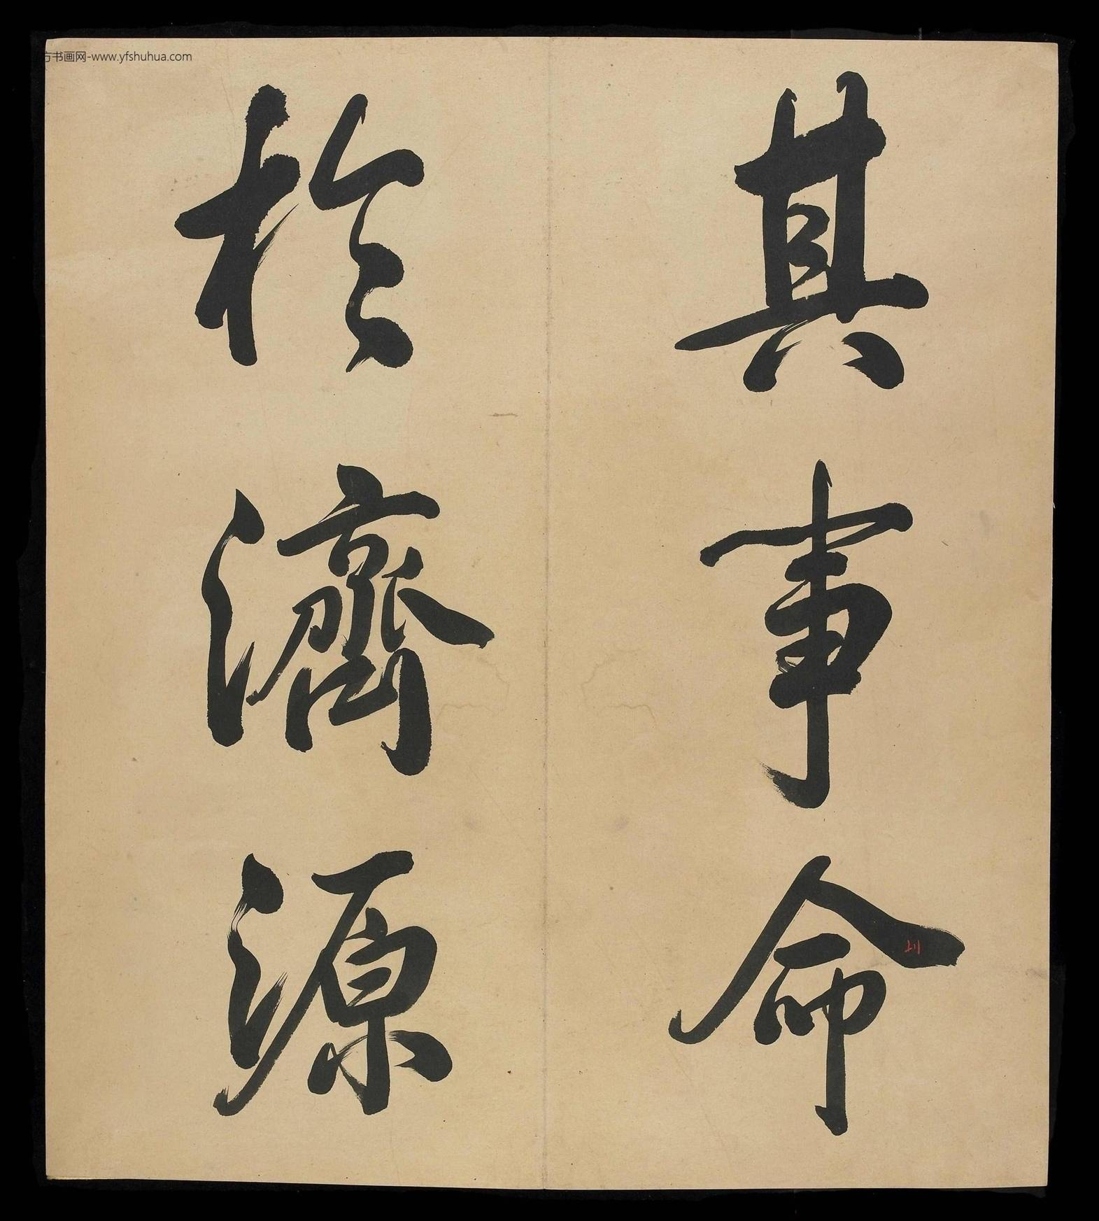 其事命
於濟源
方书画网-www.yfshuhua.com